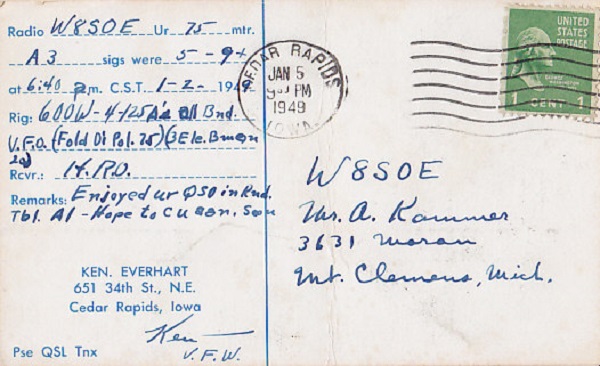 Radio W8SOE Ur 75 mtr.
A3 sigs were 5-9+
at 6:40 p.m. C.S.T. 1-2- 1949
Rig: 600W-4-125A's All Bnd.
V.F.O. (Fold Di Pol. 75) (3 Ele. Bm on
20)
Rcvr.: H.R.O.
Remarks: Enjoyed ur QSO in Rnd.
Tbl. Al - Hope to C U agn. Soon
KEN. EVERHART
651 34th St., N.E.
Cedar Rapids, Iowa
Ken
Pse QSL Tnx V.F.W.
CEDAR RAPIDS
JAN 5
9 PM
1949
IOWA
UNITED
STATES
POSTAGE
1 CENT 1
W8SOE
Mr. A. Kammer
3631 Moran
Mt. Clemens, Mich.